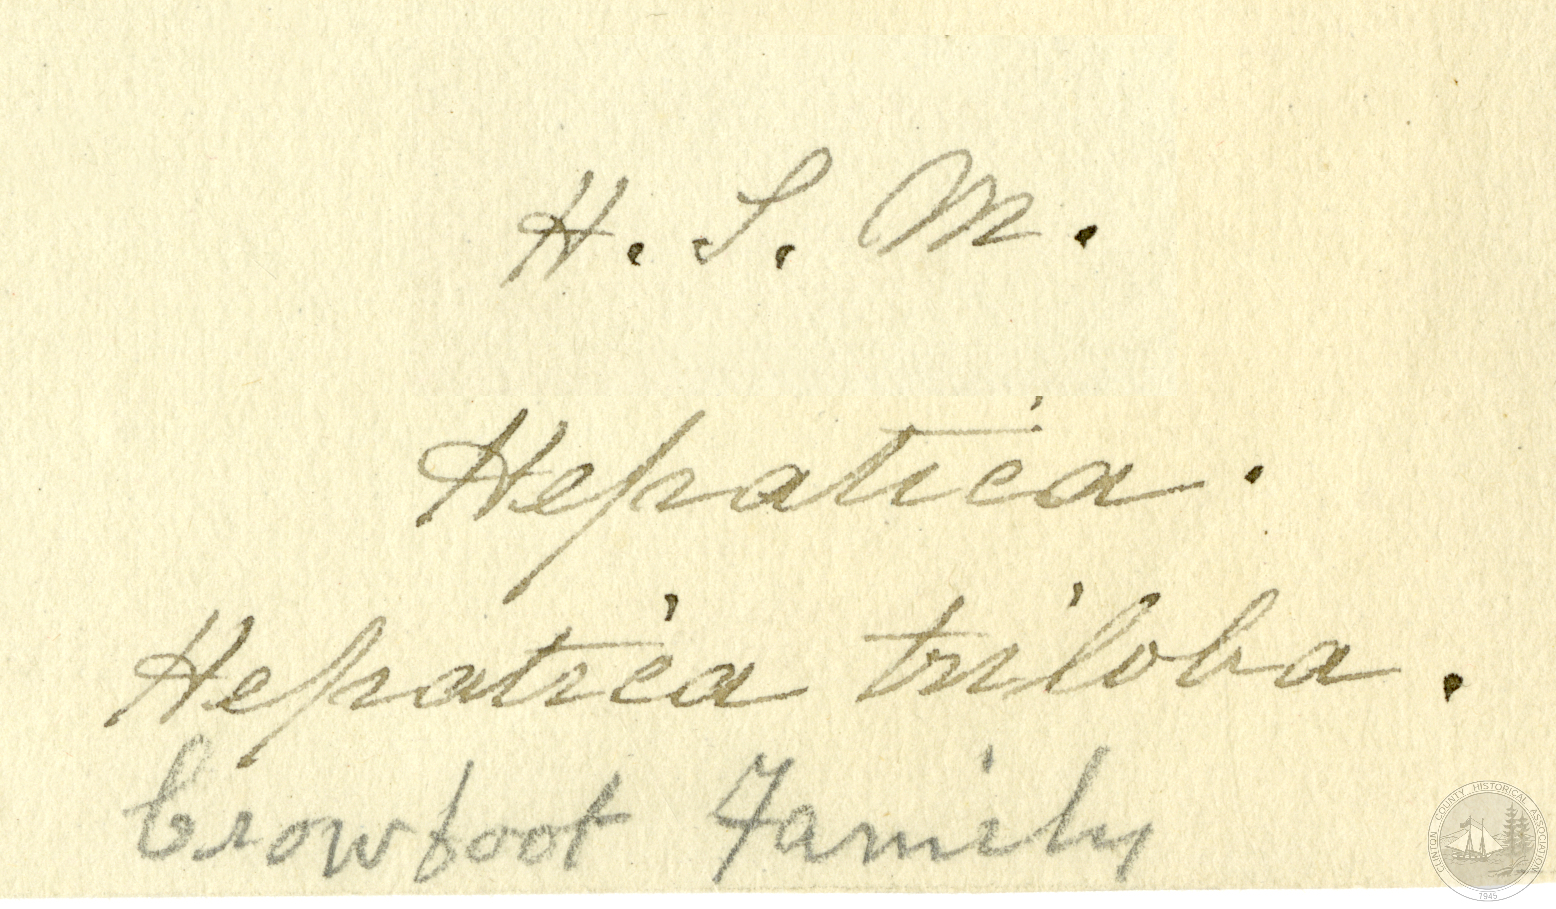 H. S. M.
Hepatica.
Hepatica triloba.
Crowfoot Family
CLINTON COUNTY HISTORICAL ASSOCIATION
1945